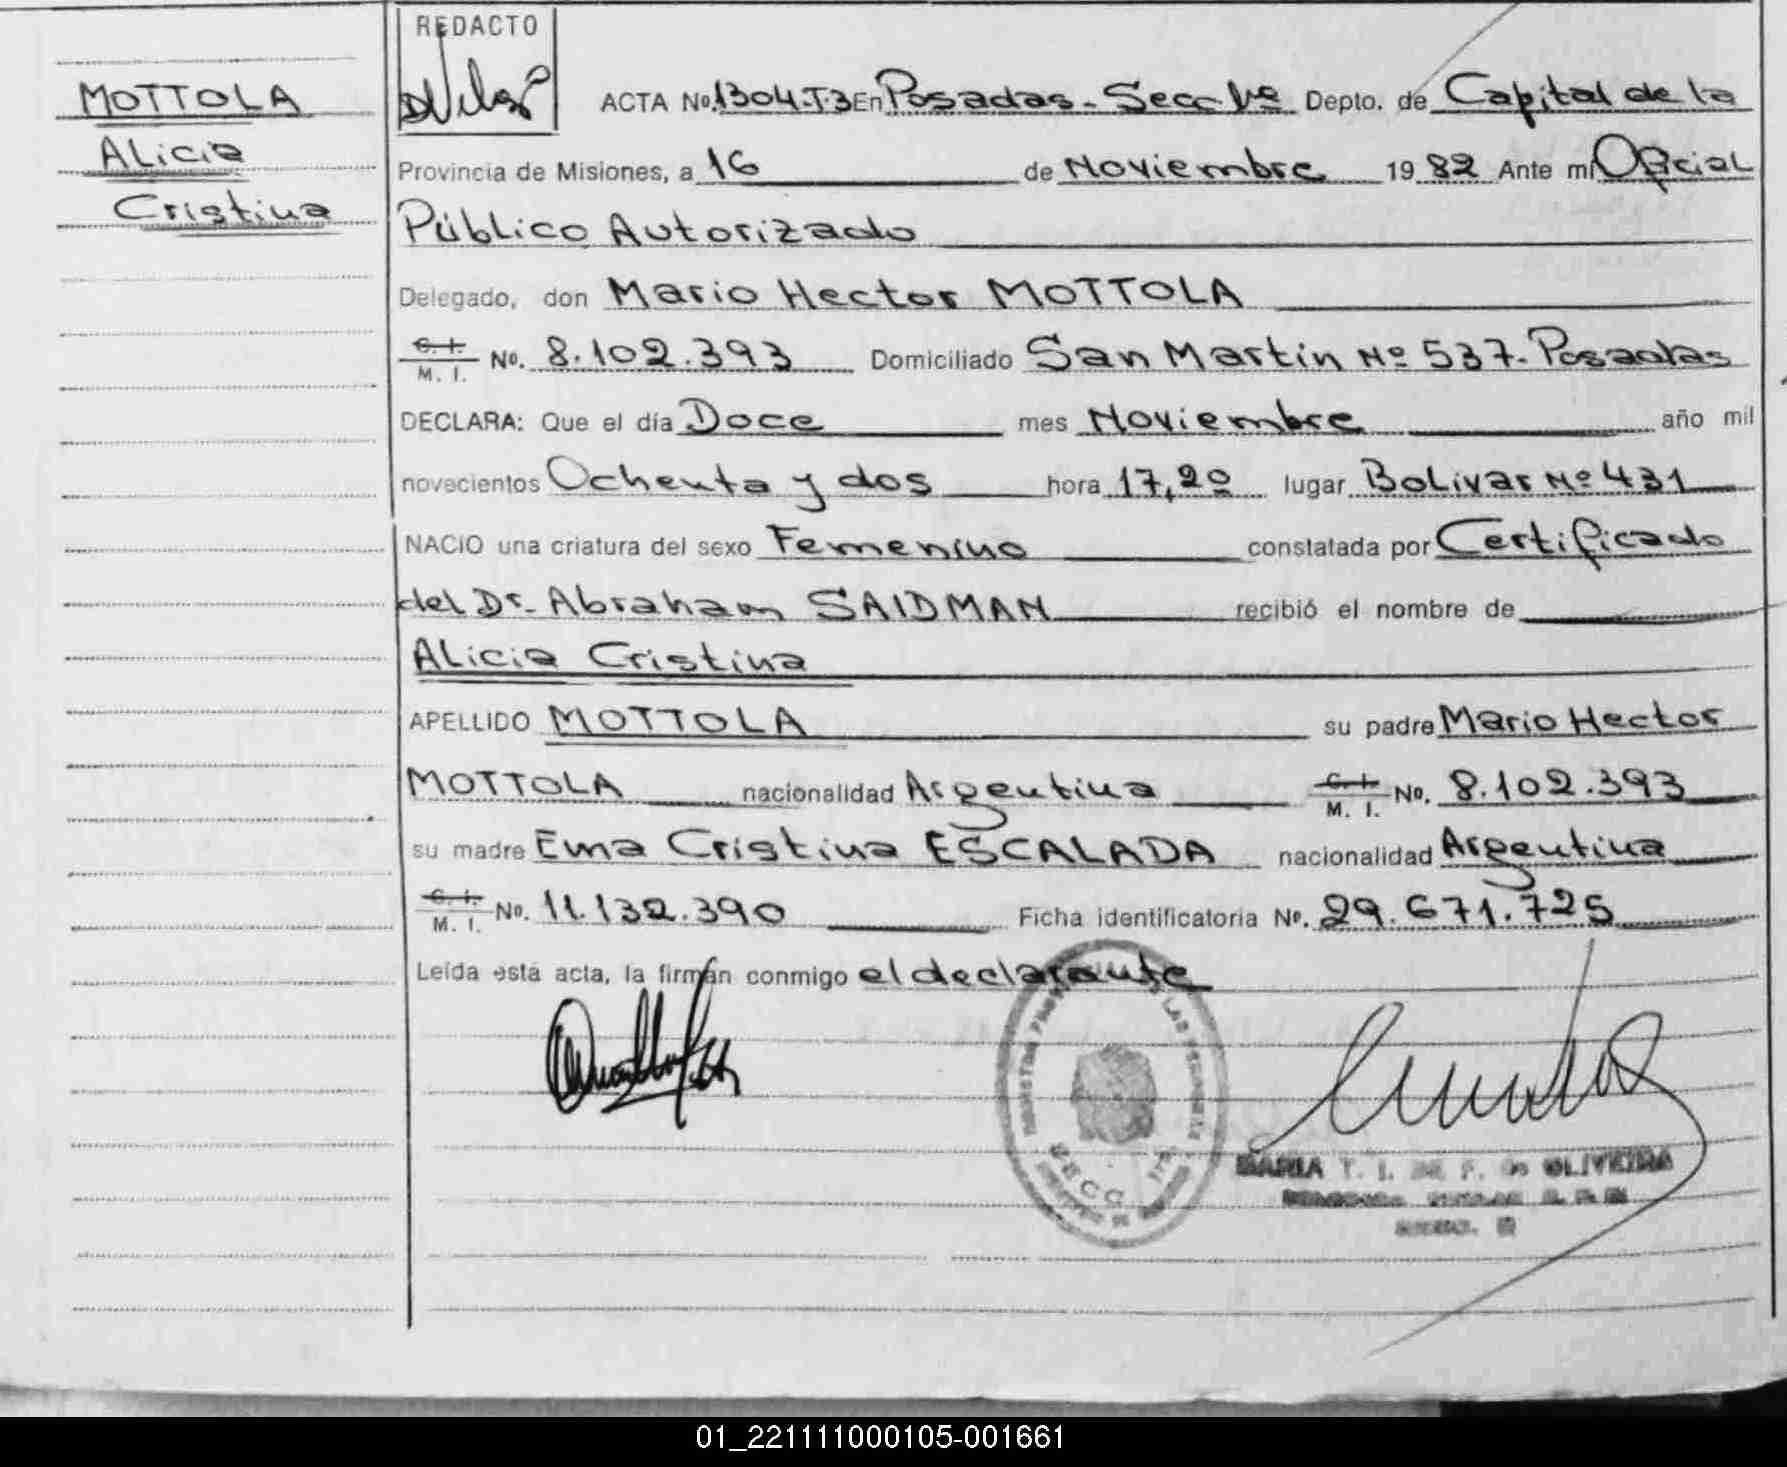 MOTTOLA
Alicia
Cristina
REDACTO
ACTA Nº. 1304.T-3 En Posadas - Secc 1ª Depto. de Capital de la
Provincia de Misiones, a 16 de Noviembre 1982 Ante mí Oficial
Público Autorizado
Delegado, don Mario Hector MOTTOLA
C. I.
M. I. Nº. 8.102.393 Domiciliado San Martin Nº 537 - Posadas
DECLARA: Que el día Doce mes Noviembre año mil
novecientos Ochenta y dos hora 17,20 lugar Bolivar Nº 431
NACIO una criatura del sexo Femenino constatada por Certificado
del Dr. Abraham SAIDMAN recibió el nombre de
Alicia Cristina
APELLIDO MOTTOLA su padre Mario Hector
MOTTOLA nacionalidad Argentina C. I. M. I. Nº. 8.102.393
su madre Ema Cristina ESCALADA nacionalidad Argentina
C. I.
M. I. Nº. 11.132.390 Ficha identificatoria Nº. 29.671.725
Leída esta acta, la firman conmigo el declarante
SECC
MARIA T. I. DE F. de OLIVEIRA
01_221111000105-001661